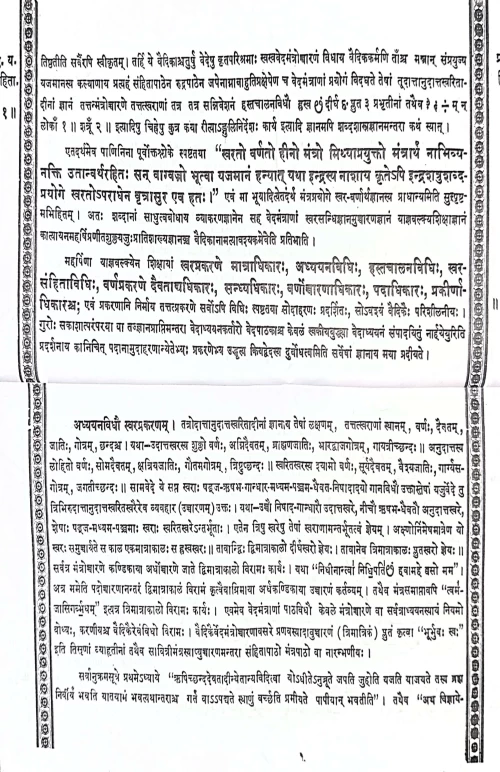 तिष्ठतीति सर्वैरपि स्वीकृतम्। तर्हि ये वैदिकाश्चतुर्षु वेदेषु कृतपरिश्रमाः स्वस्ववेदमंत्रोच्चारणं विधाय वैदिककर्मणि ताँश्च मन्त्रान् संप्रयुज्य
यजमानस्य कल्याणाय प्रत्यहं संहितापाठेन रुद्रपाठेन जपेनान्नाद्याहुतिप्रक्षेपेण च वेदमंत्राणां प्रयोगं विदधते तेषां तूदात्तानुदात्तस्वरिता-
दीनां ज्ञानं तत्तन्मंत्रोच्चारणे तत्तत्स्वराणां तत्र तत्र सन्निवेशनं हस्तचालनविधौ ह्रस्व दीर्घ प्लुत ३ प्रभृतीनां तथैव
१ ॥ इत्यादिषु चिह्नेषु कुत्र कया रीत्याऽङ्गुलिनिर्देशः कार्य इत्यादि ज्ञानमपि शब्दशास्त्रज्ञानमन्तरा कथं स्यात्।
एतदर्थमेव पाणिनिना पूर्वोक्तश्लोके स्पष्टतया "स्वरतो वर्णतो हीनो मंत्रो मिथ्याप्रयुक्तो मंत्रार्थं नाभिव्य-
नक्ति उतान्यर्थरहितः सन् वाग्वज्रो भूत्वा यजमानं हन्यात् यथा इन्द्रस्य नाशाय कृतेऽपि इन्द्रशत्रुशब्द-
प्रयोगे स्वरतोऽपराधेन वृत्रासुर एव हतः।" एवं मा भूयादित्येतदर्थं मंत्रप्रयोगे स्वर-वर्णार्थज्ञानस्य प्राधान्यमिति सुस्पष्ट-
मभिहितम्। अतः शब्दानां साधुत्वबोधाय व्याकरणज्ञानेन सह वेदमंत्राणां स्वरसन्धिज्ञानमुच्चारणज्ञानं याज्ञवल्क्यशिक्षाज्ञानं
कात्यायनमहर्षिप्रणीतशुक्लयजुःप्रातिशाख्यज्ञानञ्च वैदिकानामत्यावश्यकमेवेति प्रतिभाति।
महर्षिणा याज्ञवल्क्येन शिक्षायां स्वरप्रकरणे मात्राधिकारः, अध्ययनविधिः, हस्तचालनविधिः, स्वर-
संहिताविधिः, वर्णप्रकरणे दैवताद्यधिकारः, सन्ध्यधिकारः, वर्णोच्चारणाधिकारः, पदाधिकारः, प्रकीर्णा-
धिकारश्च; एवं प्रकरणानि निर्माय तत्तत्प्रकरणे सर्वोऽपि विधिः स्पष्टतया सोदाहरणः प्रदर्शितः, सोऽवश्यं वैदिकैः परिशीलनीयः।
गुरोः सकाशात्परंपरया वा तज्ज्ञानप्राप्तिमन्तरा वेदाध्ययनकर्तारो वेदपाठकाश्च केवलं स्वकीयबुद्ध्या वेदाध्ययनं संपादयितुं नार्हेयुरिति
प्रदर्शनाय कानिचित् पदानामुदाहरणान्येतेभ्यः प्रकरणेभ्य उद्धृत्य कियद्वेदस्य दुर्बोधत्वमिति सर्वेषां ज्ञानाय मया प्रदीयते।
अध्ययनविधौ स्वरप्रकरणम्। तत्रोदात्तानुदात्तस्वरितादीनां ज्ञानाय तेषां लक्षणम्, तत्तत्स्वराणां स्थानम्, वर्णः, दैवतम्,
जातिः, गोत्रम्, छन्दश्च। यथा—उदात्तस्वरस्य शुक्लो वर्णः, अग्निर्दैवतम्, ब्राह्मणजातिः, भारद्वाजगोत्रम्, गायत्रीच्छन्दः॥ अनुदात्तस्य
लोहितो वर्णः, सोमदैवतम्, क्षत्रियजातिः, गौतमगोत्रम्, त्रिष्टुप्छन्दः॥ स्वरितस्वरस्य श्यामो वर्णः, सूर्यदैवतम्, वैश्यजातिः, गार्ग्यस-
गोत्रम्, जगतीच्छन्दः॥ सामवेदे ये सप्त स्वराः षड्ज-ऋषभ-गान्धार-मध्यम-पञ्चम-धैवत-निषादादयो गानविधौ उक्तास्तेषां यजुर्वेदे तु
त्रिभिरुदात्तानुदात्तस्वरितस्वरैरेव व्यवहार (उच्चारणम्) उक्तः। यथा—उच्चौ निषाद-गान्धारौ उदात्तस्वरे, नीचौ ऋषभ-धैवतौ अनुदात्तस्वरे,
शेषाः षड्ज-मध्यम-पञ्चमाः स्वराः स्वरितस्वरेऽन्तर्भूताः। एतेन त्रिषु स्वरेषु तेषां स्वराणामन्तर्भूतत्वं ज्ञेयम्। अक्ष्णोर्निमेषमात्रेण यो
स्वरः समुच्चार्यते स काल एकमात्राकालः स ह्रस्वस्वरः॥ तावान्द्विः द्विमात्राकालो दीर्घस्वरो ज्ञेयः॥ तावानेव त्रिमात्राकालः प्लुतस्वरो ज्ञेयः॥
सर्वत्र मंत्रोच्चारणे कण्डिकाया अर्धोच्चारणे जाते द्विमात्राकालो विरामः कार्यः। यथा "निधीनान्त्वा निधिपतिँ हवामहे वसो मम"।
अत्र ममेति पदोच्चारणानन्तरं द्विमात्राकालं विरामं कृत्वैवाग्रिमाया अर्धकण्डिकाया उच्चारणं कर्तव्यम्। तथैव मंत्रसमाप्तावपि "त्वम-
जासिगर्भधम्" इत्यत्र त्रिमात्राकालो विरामः कार्यः। एवमेव वेदमंत्राणां पाठविधौ केवले मंत्रोच्चारणे वा सर्वत्राध्ययनस्यायं नियमो
बोध्यः, करणीयश्च वैदिकैरेवंविधो विरामः। वैदिकैर्वेदमंत्रोच्चारणावसरे प्रणवस्यादावुच्चारणं (त्रिमात्रिकं) प्लुतं कृत्वा "भूर्भुवः स्वः"
इति तिसृणां व्याहृतीनां तथैव सावित्रीमंत्रस्याप्युच्चारणमन्तरा संहितापाठो मंत्रपाठो वा नारम्भणीयः।
सर्वानुक्रमसूत्रे प्रथमेऽध्याये "ऋषिच्छन्ददैवतादीन्येतान्यविदित्वा योऽधीतेऽनुब्रूते जपति जुहोति यजति याजयते तस्य ब्रह्म
निर्वीर्यं भवति यातयामं भवत्यथान्तराश्च गर्तं वाऽऽपद्यते स्थाणुं वर्च्छति प्रमीयते पापीयान् भवतीति"। तथैव "अथ विज्ञाये-